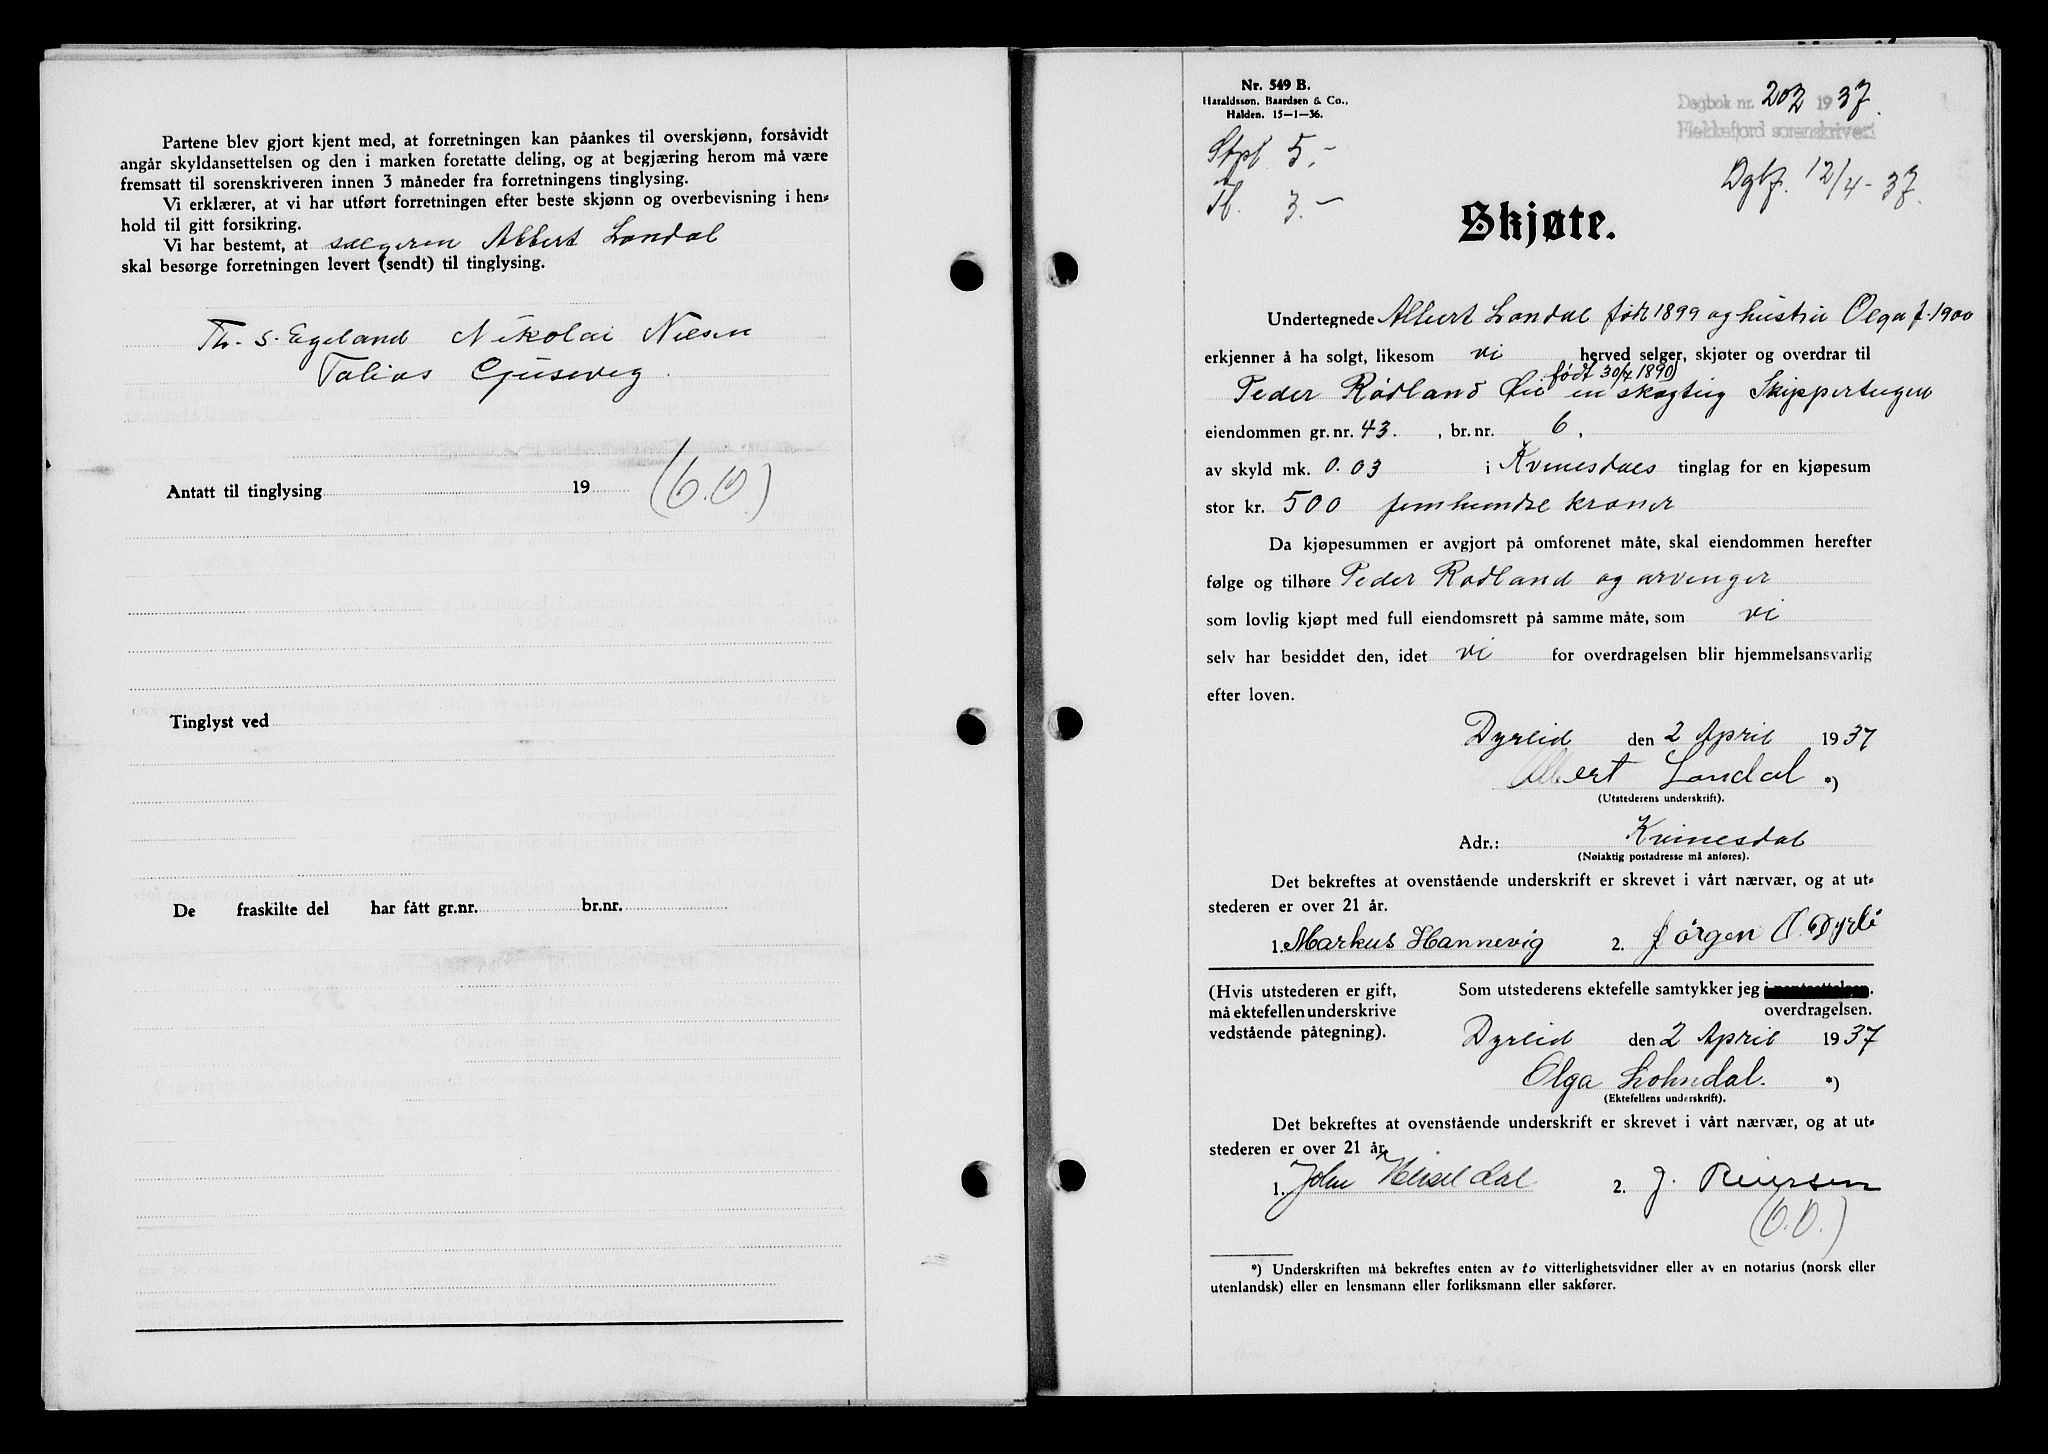 Partene blev gjort kjent med, at forretningen kan påankes til overskjønn, forsåvidt
angår skyldansettelsen og den i marken foretatte deling, og at begjæring herom må være
fremsatt til sorenskriveren innen 3 måneder fra forretningens tinglysing.
Vi erklærer, at vi har utført forretningen efter beste skjønn og overbevisning i hen-
hold til gitt forsikring.
Vi har bestemt, at sælgeren Albert Londal
skal besørge forretningen levert (sendt) til tinglysing.
Th. S. Egeland Nikolai Nilsen
Tobias Gjusevig.
Antatt til tinglysing 19
(O.O.)
Tinglyst ved
De fraskilte del har fått gr.nr. br.nr.
Nr. 549 B.
Haraldssøn, Baardsen & Co.,
Halden. 15-1-36.
Dagbok nr. 202 1937.
Flekkefjord sorenskriveri
Stpl. 5.-
Tl. 3.-
Dgbf. 12/4-37.
Skjøte.
Undertegnede Albert Londal født 1899 og hustru Olga f. 1900
erkjenner å ha solgt, likesom vi herved selger, skjøter og overdrar til
født 30/7 1890
Peder Rødland Øie en skogteig Skipperteigen
eiendommen gr. nr. 43. , br. nr. 6,
av skyld mk. 0.03 i Kvinesdals tinglag for en kjøpesum
stor kr. 500 femhundre kroner
Da kjøpesummen er avgjort på omforenet måte, skal eiendommen herefter
følge og tilhøre Peder Rødland og arvinger
som lovlig kjøpt med full eiendomsrett på samme måte, som vi
selv har besiddet den, idet vi for overdragelsen blir hjemmelsansvarlig
efter loven.
Dyrlid den 2 April 1937
Albert Londal *)
(Utstederens underskrift).
Adr.: Kvinesdal
(Nøiaktig postadresse må anføres).
Det bekreftes at ovenstående underskrift er skrevet i vårt nærvær, og at ut-
stederen er over 21 år.
1. Markus Hannevig 2. Jørgen O. Dyrli
(Hvis utstederen er gift, Som utstederens ektefelle samtykker jeg i pantsettelsen.
må ektefellen underskrive overdragelsen.
vedstående påtegning). Dyrlid den 2 April 1937
Olga Lohndal. *)
(Ektefellens underskrift).
Det bekreftes at ovenstående underskrift er skrevet i vårt nærvær, og at ut-
stederen er over 21 år.
1. John Heiseldal 2. J. Reiersen
(O.O.)
*) Underskriften må bekreftes enten av to vitterlighetsvidner eller av en notarius (norsk eller
utenlandsk) eller en lensmann eller forliksmann eller sakfører.